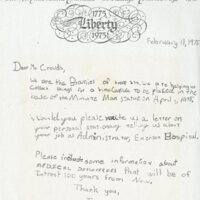 1775
Liberty
1975
February 11, 1975
Dear Mr. Crowds,
We are the Brownies of we are helping
collect things for a time Capsule to be placed in the
base of the Minute Man statue on April, 1975
Would you please write us a letter on
your personal stationary telling us about
your job as Administrator, Emerson Hospital.
Please include some information about
medical that will be of
intrest 100 years from now.
Thank you,